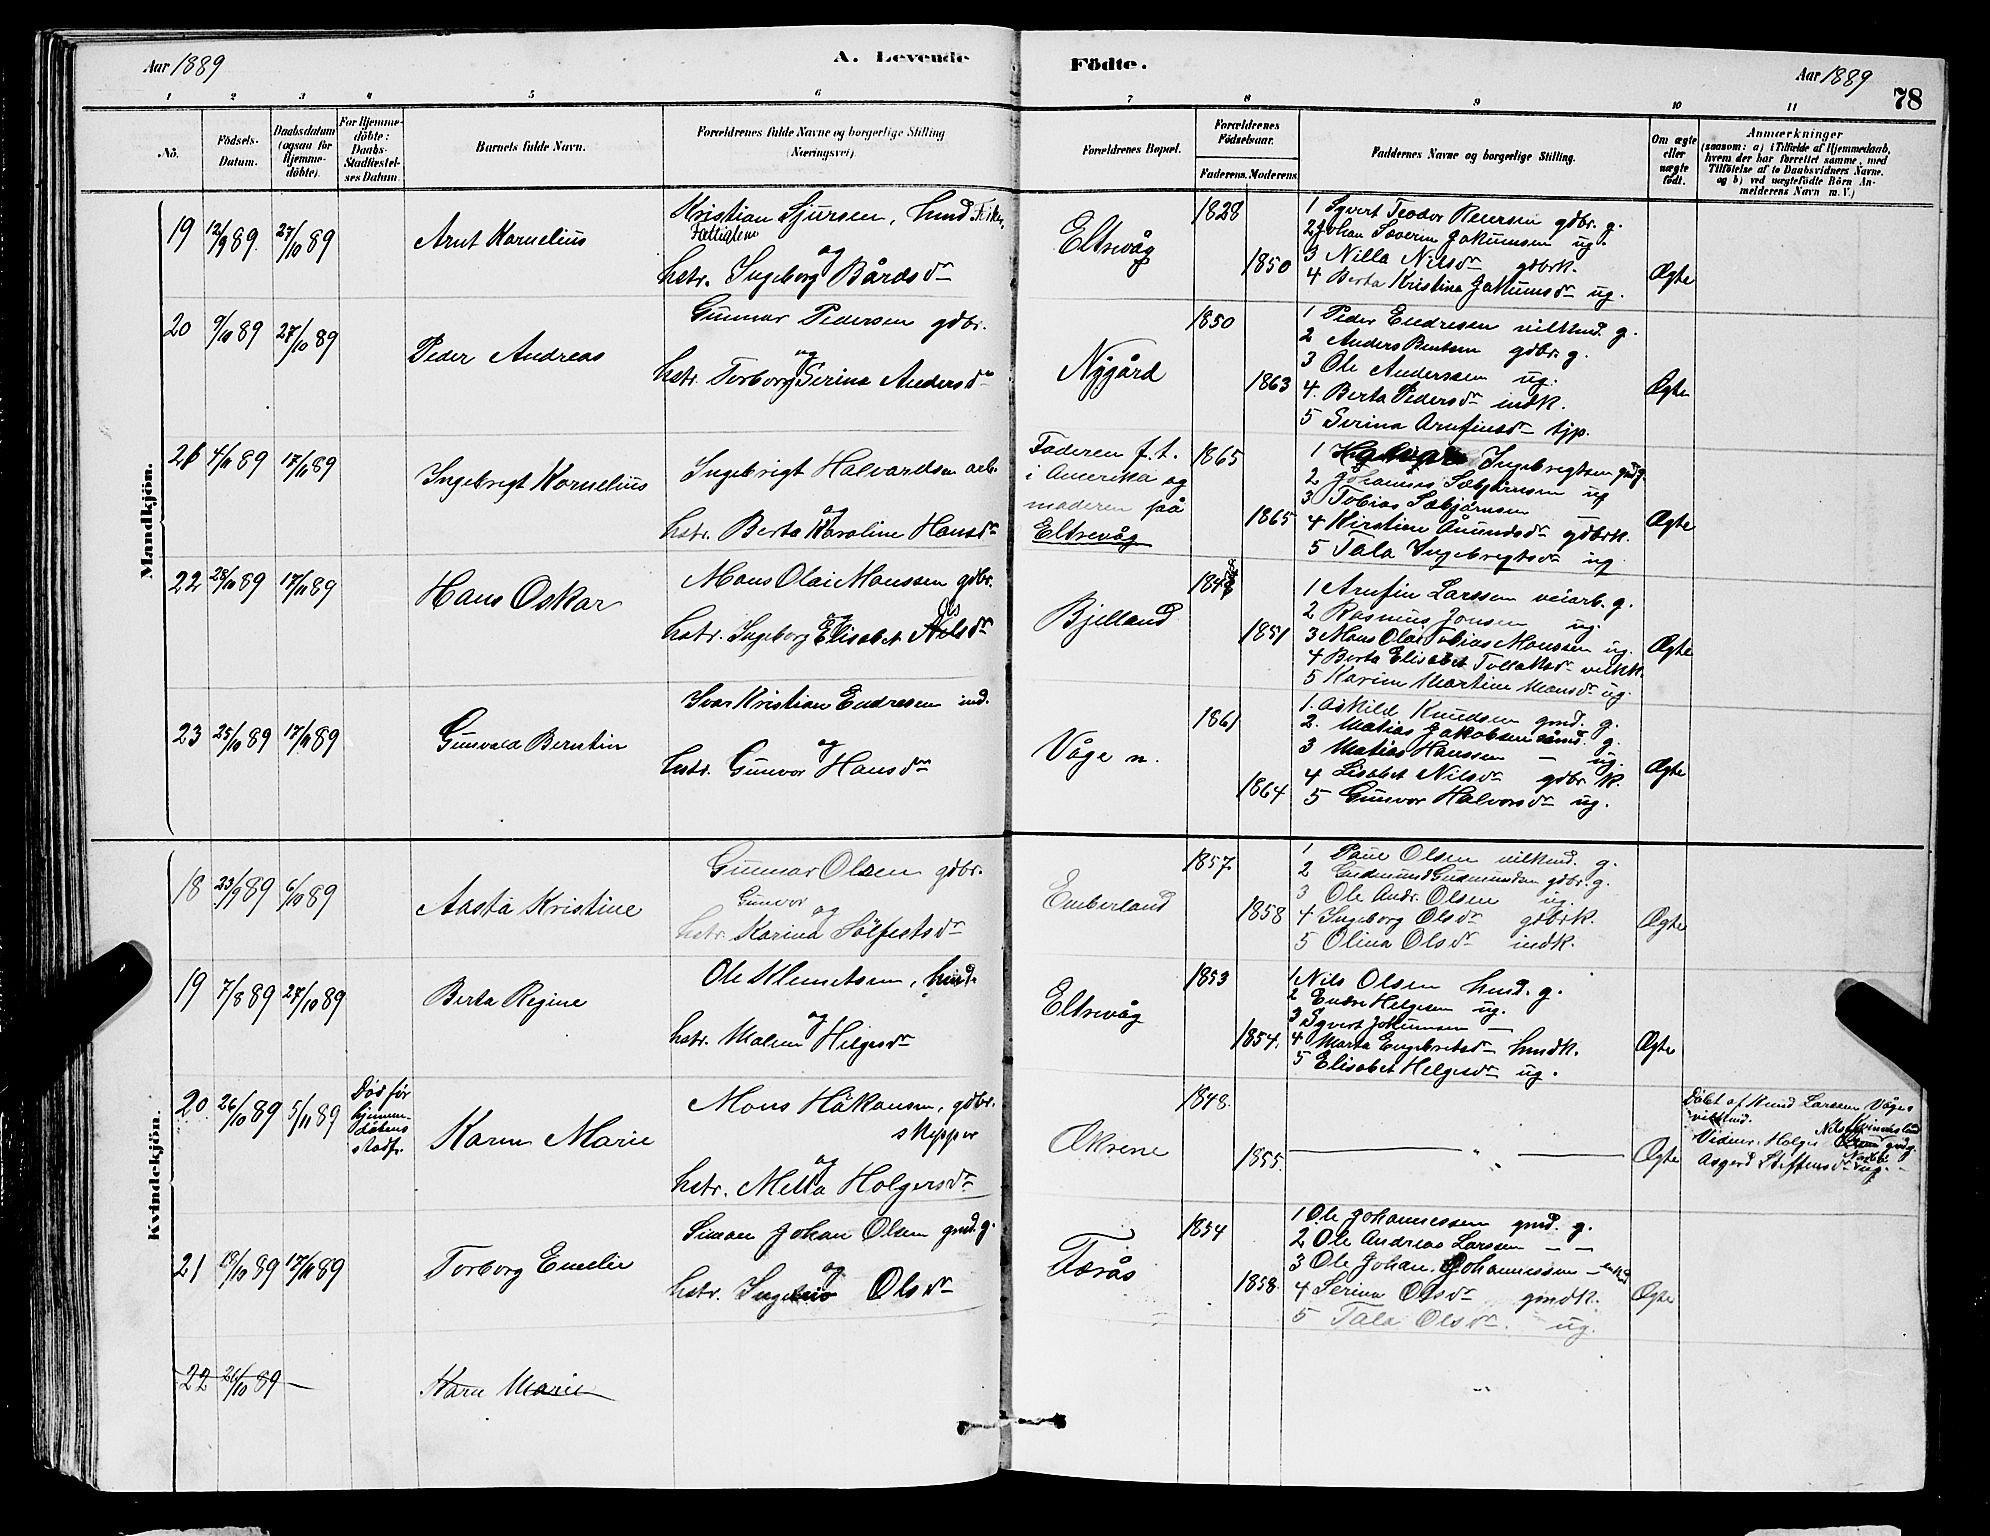 Aar 1889
A. Levende
Födte.
Aar 1889
78
1 2 3 4 5 6 7 8 9 10 11
No.
Födsels-Datum.
Daabsdatum (ogsaa for Hjemme-döbte).
For Hjemme-döbte: Daabs-Stadfæstel-ses Datum.
Barnets fulde Navn.
Forældrenes fulde Navne og borgerlige Stilling (Næringsvei).
Forældrenes Bopæl.
Forældrenes Födselsaar.
Faderens. Moderens.
Faddernes Navne og borgerlige Stilling.
Om ægte eller uægte födt.
Anmærkninger
(saasom: a) i Tilfælde af Hjemmedaab,
hvem der har forrettet samme, med
Tilföielse af to Daabsvidners Navne.
og b) ved uægtefödte Börn An-
melderens Navn m. V.)
Mandkjön.
19 12/9 89. 27/10 89
Arnt Kornelius
Kristian Sjursen, hmd
Fattiglem
og
hstr. Ingeborg Bårdsdr
Eltrevåg
1828
1850
1 Syvert Teodor gdbr. g.
2 Johan Severin Jakumsen ug.
3 Nilla Nilsdr gdbrk.
4 Berta Kristina Jakumsdr ug.
Ægte
20 9/10 89 27/10 89
Peder Andreas
Gunnar Pedersen gdbr.
og
hstr. Torborg Serina Andersdr
Nygård
1850
1863
1 Peder Endresen vilkmd. g.
2 Anders Bentsen gdbr. g.
3 Ole Anderssen ug.
4. Berta Pedersdr indk.
5 Serina Arnfinsdr tjp.
Ægte
21 4/11 89 17/11 89
Ingebrigt Kornelius
Ingebrigt Halvardsen arb.
og
hstr. Berta Karoline Hansdr
Faderen f.t.
i Amerika og
moderen på
Eltrevåg
1865
1865
1 Ingebrigtsen
2 Johannes Sæbjørnsen ug
3 Tobias Sæbjørnsen
4 Kirstine Åmundsdr gdbrk.
5 Tala Ingebrigtsdr ug
Ægte
22 28/10 89 17/11 89
Hans Oskar
Mons Olai Monssen gdbr.
og Ols
hstr. Ingeborg Elisabet Nilsdr
Bjelland
1851
1 Arnfin Larssen veiarb. g.
2 Rasmus Jonsen ug.
3 Mons Olai Tobias Monssen ug.
4 Berta Elisabet Tollaksdr vilkk.
5 Karine Martine Monsdr ug.
Ægte
23 25/10 89 17/11 89
Gunvald Berntin
Ivar Kristian Endresen ind.
og
hstr. Gunvor Hansdr
Våge n.
1861
1864
1. Askild Knudsen gmd. g.
2. Matias Jakobsen g.
3 Matias Hanssen – ug.
4 Lisabet Nilsdr gdbr. k.
5 Gunvor Halvorsdr ug.
Ægte
Kvindekjön.
18 23/9 89 6/10 89
Aasta Kristine
Gunnar Olsen gdbr.
Gunvor og
hstr. Karina Sölfestsdr
Emberland
1857.
1858
1 Paul Olsen vilkmd. g.
2 Gudmund Gudmundsen gdbr. g.
3 Ole Andr. Olsen ug.
4 Ingeborg Olsdr gdbrk.
5 Olina Olsdr indk.
Ægte
19 7/8 89 27/10 89
Berta Regine
Ole Klemetsen, hmd.
og
hstr. Malene Helgesdr
Eltrevåg
1853
1854.
1 Nils Olsen hmd. g.
2 Endre Helgesen ug.
3 Syvert Jokumsen –
4 Marta Engebretsdr hmdk.
5 Elisabet Helgesdr ug.
Ægte
20 26/10 89 5/11 89
Död før
hjemme-
döbens
stadf.
Karen Marie
Mons Håkonsen, gdbr.
skipper
og
hstr. Metta Holgersdr
Økrene
1848.
1855.
– " –
Ægte
Döbt af Knud Larssen Våges
vilkmd.
Vidner: Holger Nilsen gmdg.
Asgerd Steffensdr ug.
21 19/10 89 17/11 89
Torborg Emelie
Simon Johan Olsen gmd. g.
og
hstr. Olsdr
Færås
1854
1858.
1 Ole Johannessen gmd. g.
2 Ole Andreas Larssen – –
3 Ole Johan Johannessen –
4 Serina Olsdr gmdk.
5 Tala Olsdr. ug.
Ægte
22 26/10 89 –
Karen Marie